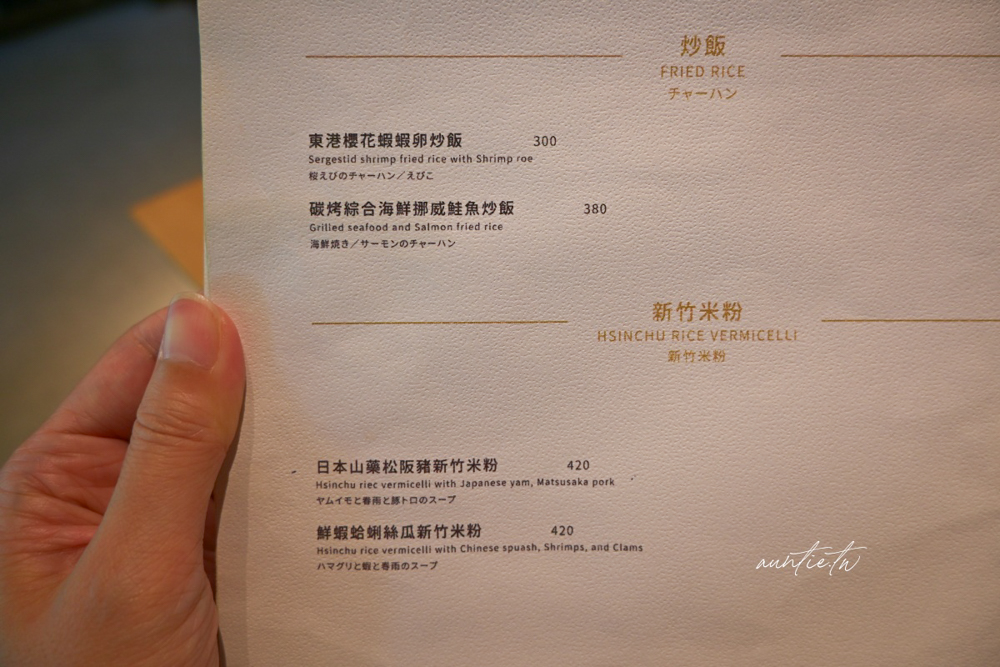 炒飯
FRIED RICE
チャーハン
東港櫻花蝦蝦卵炒飯 300
Sergestid shrimp fried rice with Shrimp roe
桜えびのチャーハン／えびこ
碳烤綜合海鮮挪威鮭魚炒飯 380
Grilled seafood and Salmon fried rice
海鮮焼き／サーモンのチャーハン
新竹米粉
HSINCHU RICE VERMICELLI
新竹米粉
日本山藥松阪豬新竹米粉 420
Hsinchu riec vermicelli with Japanese yam, Matsusaka pork
ヤムイモと春雨と豚トロのスープ
鮮蝦蛤蜊絲瓜新竹米粉 420
Hsinchu rice vermicelli with Chinese spuash, Shrimps, and Clams
ハマグリと蝦と春雨のスープ
auntie.tw